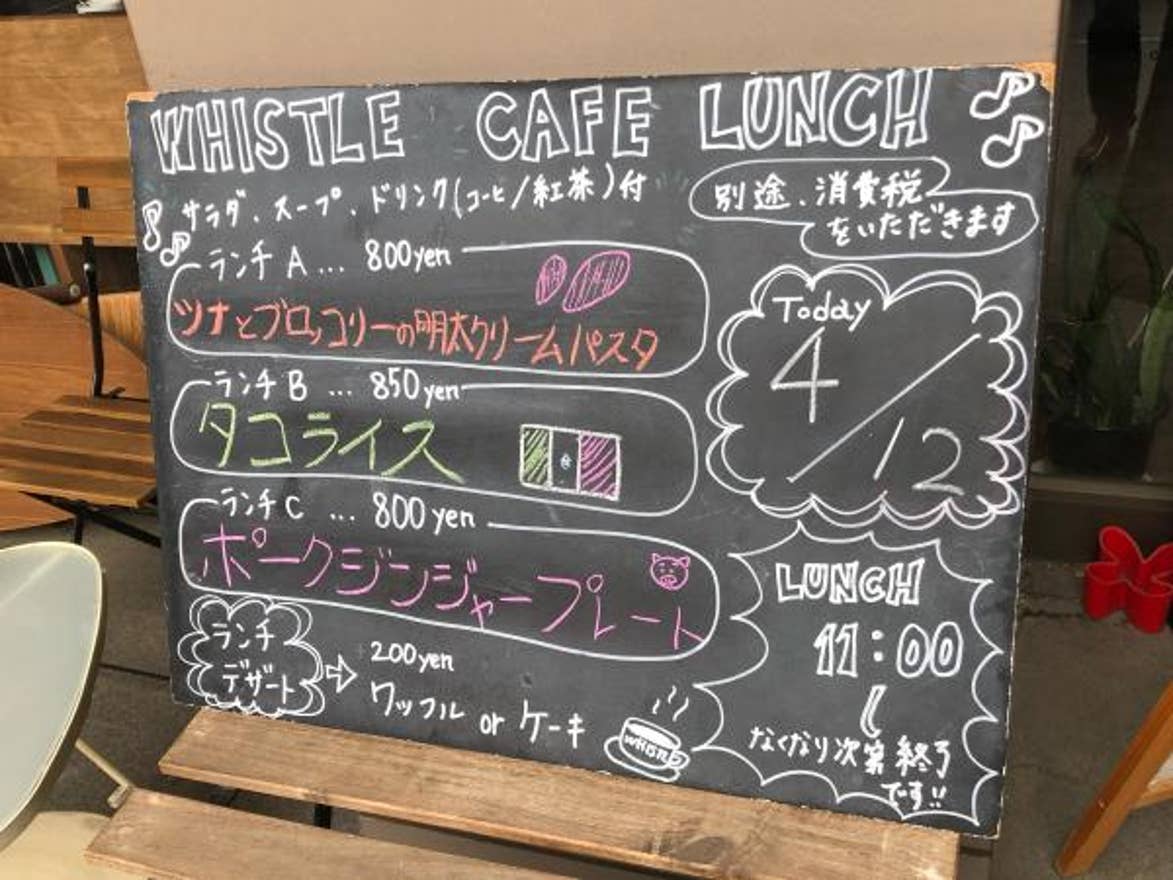 WHISTLE CAFE LUNCH
サラダ、スープ、ドリンク(コーヒ/紅茶)付
別途、消費税
をいただきます
ランチ A ... 800yen
ツナとブロッコリーの明太クリームパスタ
ランチ B ... 850yen
タコライス
ランチ C ... 800yen
ポークジンジャープレート
Today
4/12
ランチ
デザート
200yen
ワッフル or ケーキ
WHISTLE
LUNCH
11:00
〜
なくなり次第終了
です!!